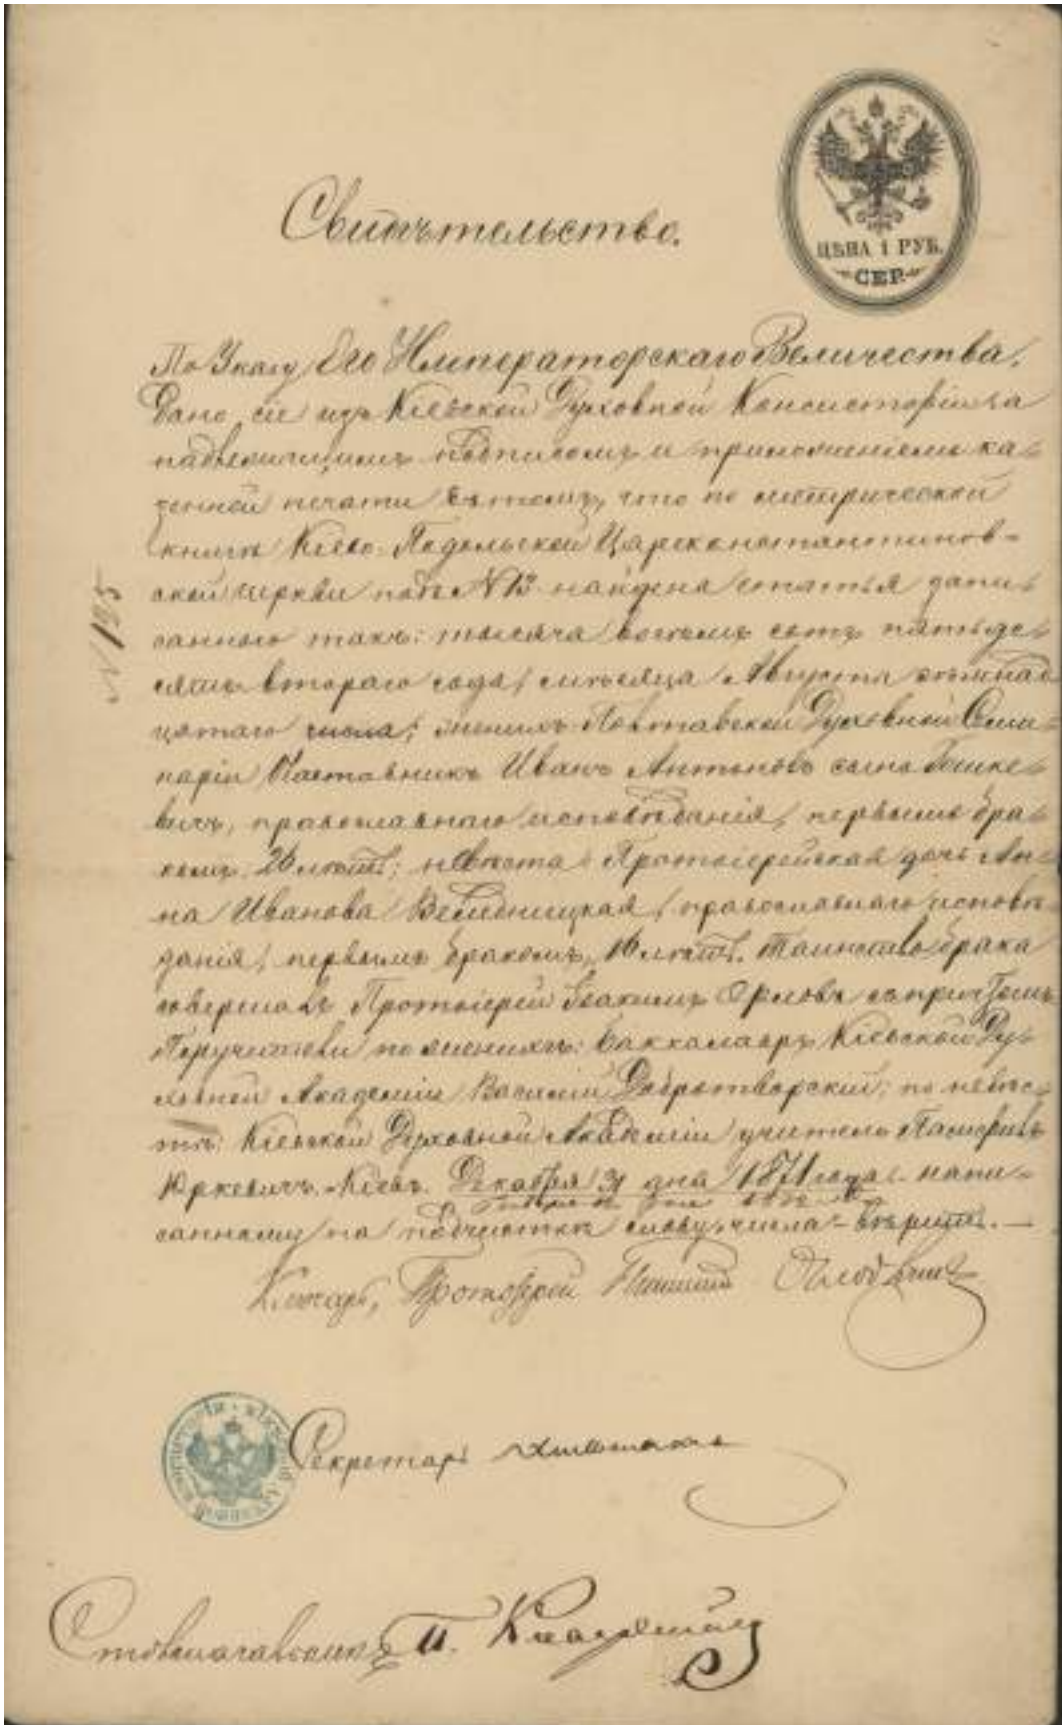 Свидѣтельство.
ЦѢНА 1 РУБ.
СЕР.
По Указу Его Императорскаго Величества.
Дано сіе изъ Кіевской Духовной Консисторіи за
надлежащимъ подписомъ и приложеніемъ ка-
зенной печати въ томъ, что по метрической
книгѣ Кіево-Подольской Цареконстантинов-
ской церкви подъ № 13 найдена статья запи-
саннаго такъ: тысяча восемь сотъ пятьде-
сятъ втораго года, мѣсяца Августа
цатаго числа; женихъ Полтавской Духовной Семи-
наріи Наставникъ Иванъ Антоновъ сынъ
вичъ, православнаго исповѣданія, первымъ бра-
комъ, 26 лѣтъ; невѣста Протоіерейская дочь Ан-
на Иванова православнаго исповѣ-
данія, первымъ бракомъ, 16 лѣтъ. Таинство брака
совершалъ Протоіерей Іоакимъ Орловъ съ причтомъ
Поручители по женихѣ: Баккалавръ Кіевской Ду-
ховной Академіи Василій Добротворскій; по невѣс-
тѣ: Кіевской Духовной Академіи учитель Памфилъ
Юркевичъ. Кіевъ. Декабря 31 дня 1871 года. Напи-
санному на подчисткѣ слову: числа - вѣрить.
Ключарь, Протоіерей
№ 195
Секретарь
Столоначальникъ П.